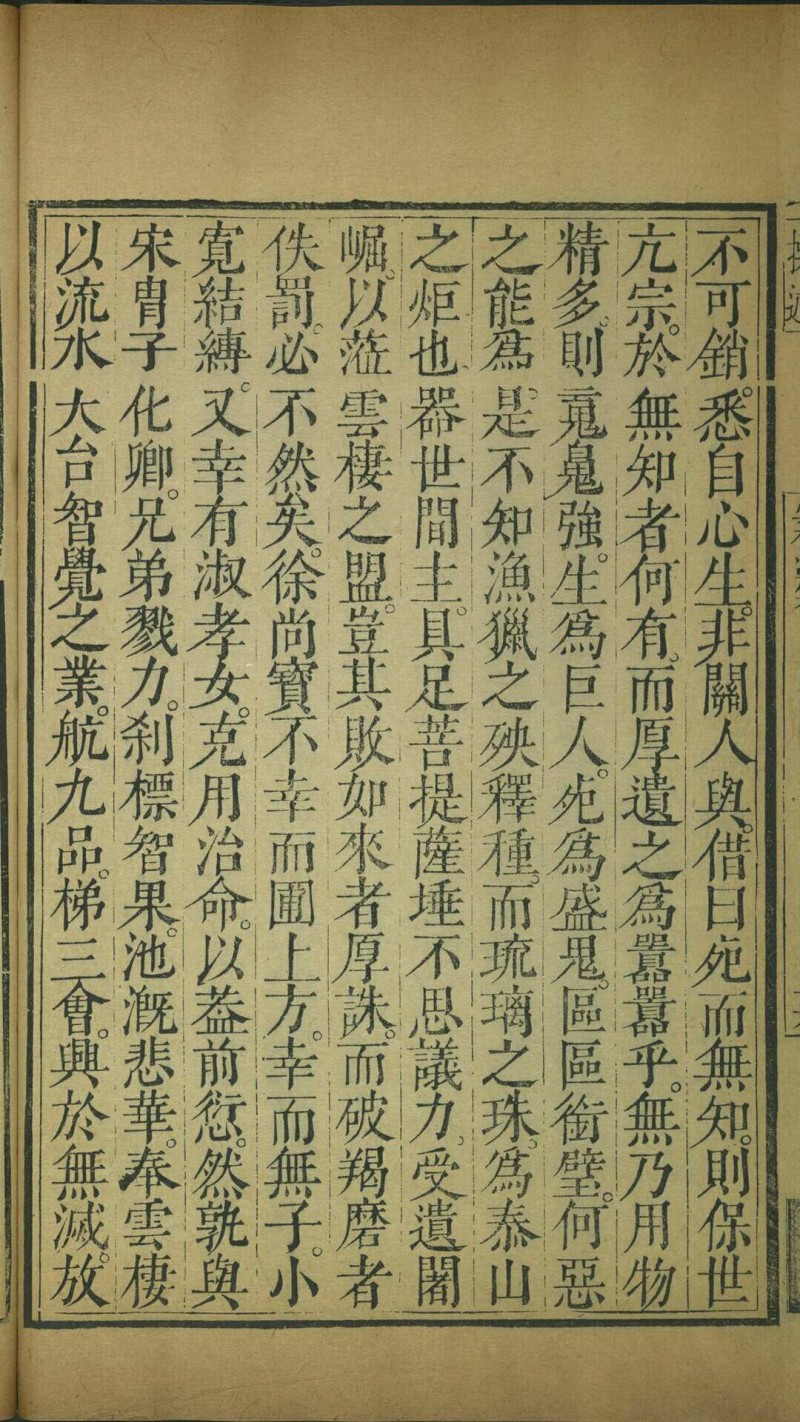 不可銷。悉自心生。非關人與。借曰死而無知。則保世
亢宗。於無知者何有。而厚遺之爲囂囂乎。無乃用物
精多。則䰟鬼強。生爲巨人。死爲盛鬼。區區銜璧。何惡
之能爲。是不知漁獵之殃釋種。而琉璃之珠。爲泰山
之炬也。器世間主。具足菩提薩埵不思議力。受遺闍
崛。以蒞雲棲之盟。豈其敗如來者厚誅。而破羯磨者
佚罰。必不然矣。徐尚寶不幸而圃上方。幸而無子。小
寬結縛。又幸有淑孝女。克用治命。以葢前愆。然孰與
宋胄子化卿。兄弟戮力。刹標智果。池漑悲華。奉雲棲
以流水大台智覺之業。航九品。梯三會。興於無滅。放